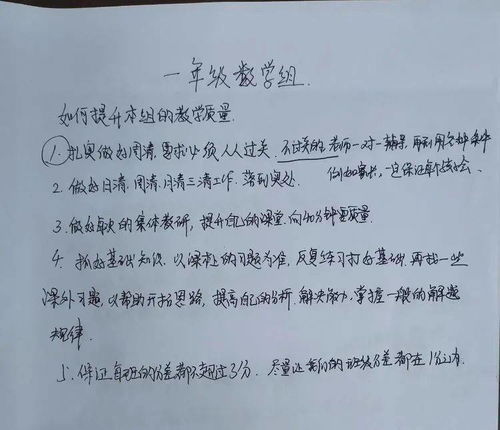 一年级数学组.
如何提升本组的教学质量.
1. 扎实做好周清.要求必须人人过关.不过关的老师一对一辅导.再利用各种条件
2. 做好日清.周清.月清三清工作.落到实处. 例如家长,一定保证每个孩子会.
3. 做好每次的集体教研,提升自己的课堂.向40分钟要质量.
4. 抓好基础知识.以课本上的习题为准,反复练习打好基础.再找一些
课外习题,以帮助开拓思路,提高自己的分析.解决能力,掌握一般的解题
规律.
5. 保证每班的分差都不超过3分.尽量让我们的班级分差都在1分之内.